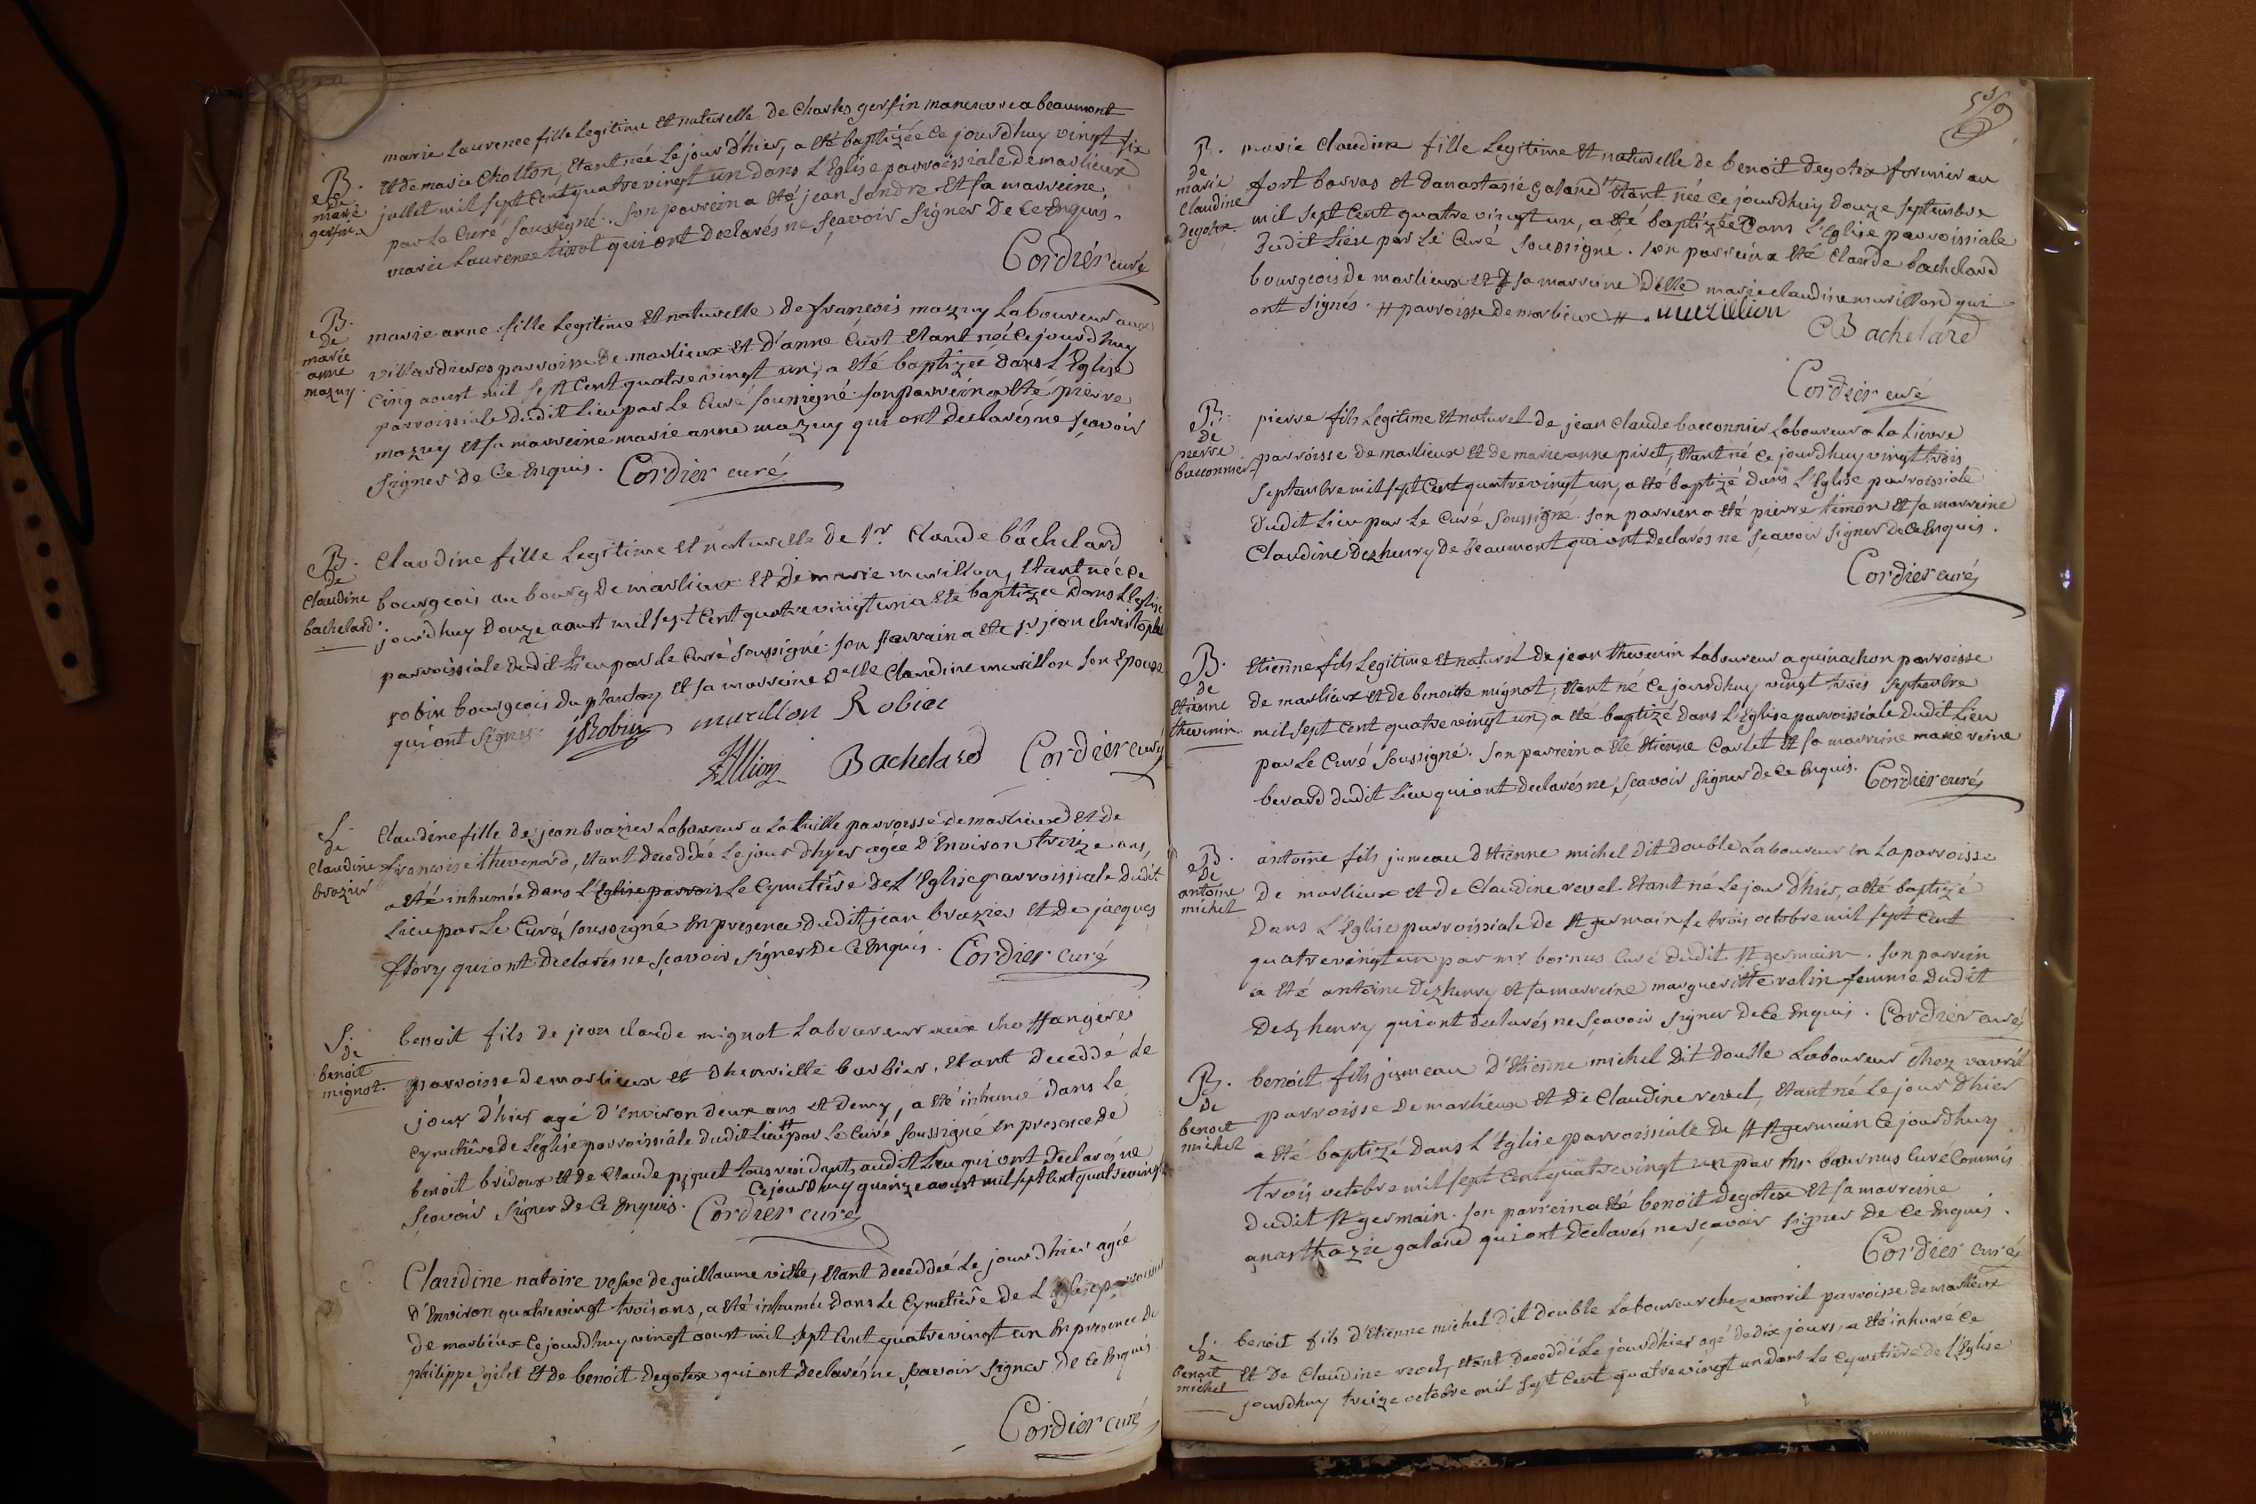 marie Laurence fille Legitime Et naturelle de Charles gerfin manœuvre a beaumont
B. Et de marie Chollon, Etant née Le jour d'hier, a Eté baptizée Ce jourd'huy vingt six
de
marie
gerfin
jullet mil sept Cent quatre vingt un dans L'Eglise parroissiale de marlieux
par Le Curé soussigné. son parrein a Eté jean sandre Et sa marreine
marie Laurence tivot qui ont declarés ne sçavoir signer De Ce Enquis.
Cordier curé
B.
de
marie
anne
mazuy.
marie anne fille Legitime Et naturelle de françois mazuy Laboureur aux
villardieres parroisse De marlieux Et D'anne Curt Etant née Ce jourd'huy
Cinq aoust mil sept Cent quatre vingt un, a Eté baptizée dans L'Eglise
parroissiale dudit Lieu par Le Curé soussigné. son parrein a Eté pierre
mazuy Et sa marreine marie anne mazuy qui ont declarés ne sçavoir
signer De Ce Enquis. Cordier curé
B.
de
Claudine
bachelard.
Claudine fille Legitime Et naturelle de Sr. Claude bachelard
bourgeois au bourg De marlieux Et de marie murillon, Etant née Ce
jourd'huy Douze aoust mil sept Cent quatre vingt un a Eté baptizée Dans L'Eglise
parroissiale dudit Lieu par Le Curé soussigné. son parrain a Eté Sr. jean christophe
robin bourgeois du plantay Et sa marreine Dlle Claudine murillon son Epouse
qui ont signés. JRobin murillon Robin
Bachelard Cordier curé
S.
de
Claudine
brazier
Claudine fille de jean brazier Laboureur a La tuille parroisse de marlieux Et de
françoise thevenard, Etant decedée Le jour d'hyer agée D'Environ treize ans,
a Eté inhumée Dans L'Eglise parrois Le Cymetière de L'Eglise parroissiale dudit
Lieu par Le Curé soussigné En presence dudit jean brazier Et De jacques
flory qui ont declarés ne sçavoir signer De Ce Enquis. Cordier curé
S.
de
benoit
mignot.
benoit fils de jean claude mignot Laboureur aux
parroisse de marlieux Et d'henriette barbier, Etant decedé Le
jour d'hier agé d'Environ deux ans Et demy, a Eté inhumé dans Le
Cymetière de L'église parroissiale dudit Lieu # par Le Curé soussigné En presence de
benoit bridoux Et de Claude piquet tous residants audit Lieu qui ont declarés ne
# Ce jourd'huy quinze aoust mil sept Cent quatre vingt
Sçavoir signer De Ce Enquis. Cordier curé
Claudine natoire vefve de guillaume ville, Etant decedée Le jour d'hier agée
d'Environ quatre vingt trois ans, a Eté inhumée dans Le Cymetière de L'Eglise parroissiale
de marlieux Ce jourd'huy vingt aoust mil sept Cent quatre vingt un En presence de
philippe gilet Et de benoit degotex qui ont declarés ne sçavoir signer de Ce Enquis
Cordier curé
B.
de
marie
claudine
degotex.
marie claudine fille Legitime Et naturelle de benoit degotex fermier au
fort barras Et d'anastasie galand # Etant née Ce jourd'huy douze septembre
mil sept Cent quatre vingt un, a Eté baptizée Dans L'Eglise parroissiale
dudit Lieu par Le Curé soussigné. son parrein a Eté Claude bachelard
bourgeois de marlieux et sa marreine Dlle marie claudine murillon qui
ont signés. # parroisse de marlieux #. murillion
CBachelard
Cordier curé
B.
de
pierre
baconnier
pierre fils Legitime Et naturel de jean Claude baconnier Laboureur a La Lievre
parroisse de marlieux Et de marie anne pivet, Etant né Ce jourd'huy vingt trois
septembre mil sept Cent quatre vingt un, a Eté baptizé dans L'Eglise parroissiale
dudit Lieu par Le Curé soussigné. son parrein a Eté pierre timon Et sa marreine
Claudine Dezheury de beaumont qui ont declarés ne sçavoir signer de Ce Enquis.
Cordier curé
B.
de
Etienne
thevenin
Etienne fils Legitime Et naturel de jean thevenin Laboureur a guinachon parroisse
de marlieux Et de benoitte mignot, Etant né Ce jourd'huy vingt trois septembre
mil sept Cent quatre vingt un, a Eté baptizé dans L'Eglise parroissiale dudit Lieu
par Le Curé soussigné. son parrein a Eté Etienne Carlet Et sa marreine marie reine
berard dudit Lieu qui ont declarés ne sçavoir signer de Ce Enquis. Cordier curé
B.
de
antoine
michel
antoine fils jumeau d'Etienne michel dit double Laboureur en La parroisse
De marlieux Et de Claudine revel Etant né Le jour d'hier, a Eté baptizé
dans L'Eglise parroissiale de St germain Le trois octobre mil sept Cent
quatre vingt un par mr. bornus Curé dudit St germain. son parrein
a Eté antoine dezheury Et sa marreine margueritte rolin femme dudit
dezheury qui ont declarés ne sçavoir signer de Ce Enquis. Cordier curé
B.
de
benoit
michel
benoit fils jumeau d'Etienne michel dit double Laboureur chez vavril
parroisse De marlieux Et de Claudine revel, Etant né Le jour d'hier
a Eté baptizé dans L'Eglise parroissiale de St germain Ce jourd'huy
trois octobre mil sept Cent quatre vingt un par Mr. bournus Curé Commis
dudit St germain. son parrein a Eté benoit degotex Et sa marreine
anasthazie galand qui ont declarés ne sçavoir signer de Ce Enquis.
Cordier curé
S.
de
benoit
michel
benoit fils d'Etienne michel dit double Laboureur chez vavril parroisse de marlieux
Et De Claudine revel, Etant decedé Le jour d'hier agé de dix jours, a Eté inhumé Ce
jourd'huy treize octobre mil sept Cent quatre vingt un dans Le Cymetière de L'Eglise